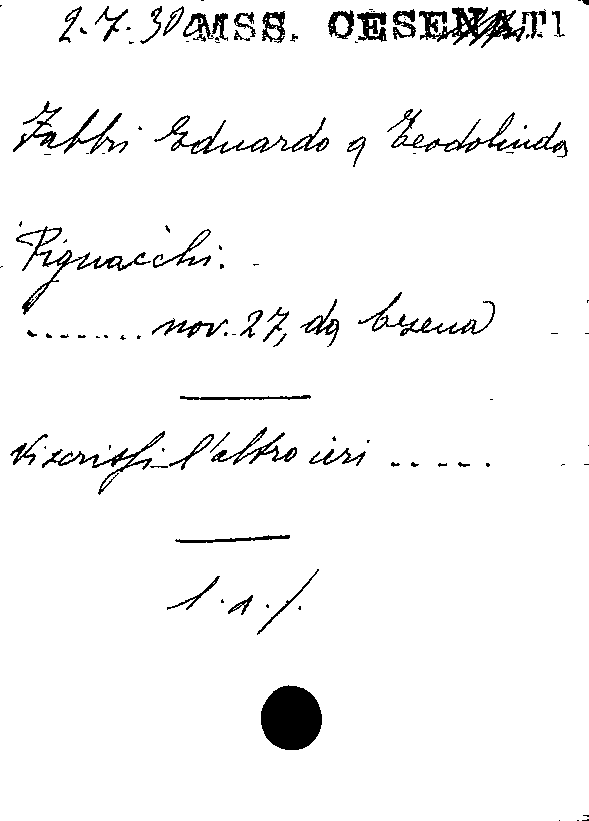 2.7.30 MSS. CESENATI
Fabbri Eduardo a Teodolinda
Pignacchi.
....... nov. 27, da Cesena
Vi scrissi l'altro ieri .....
l. a. f.